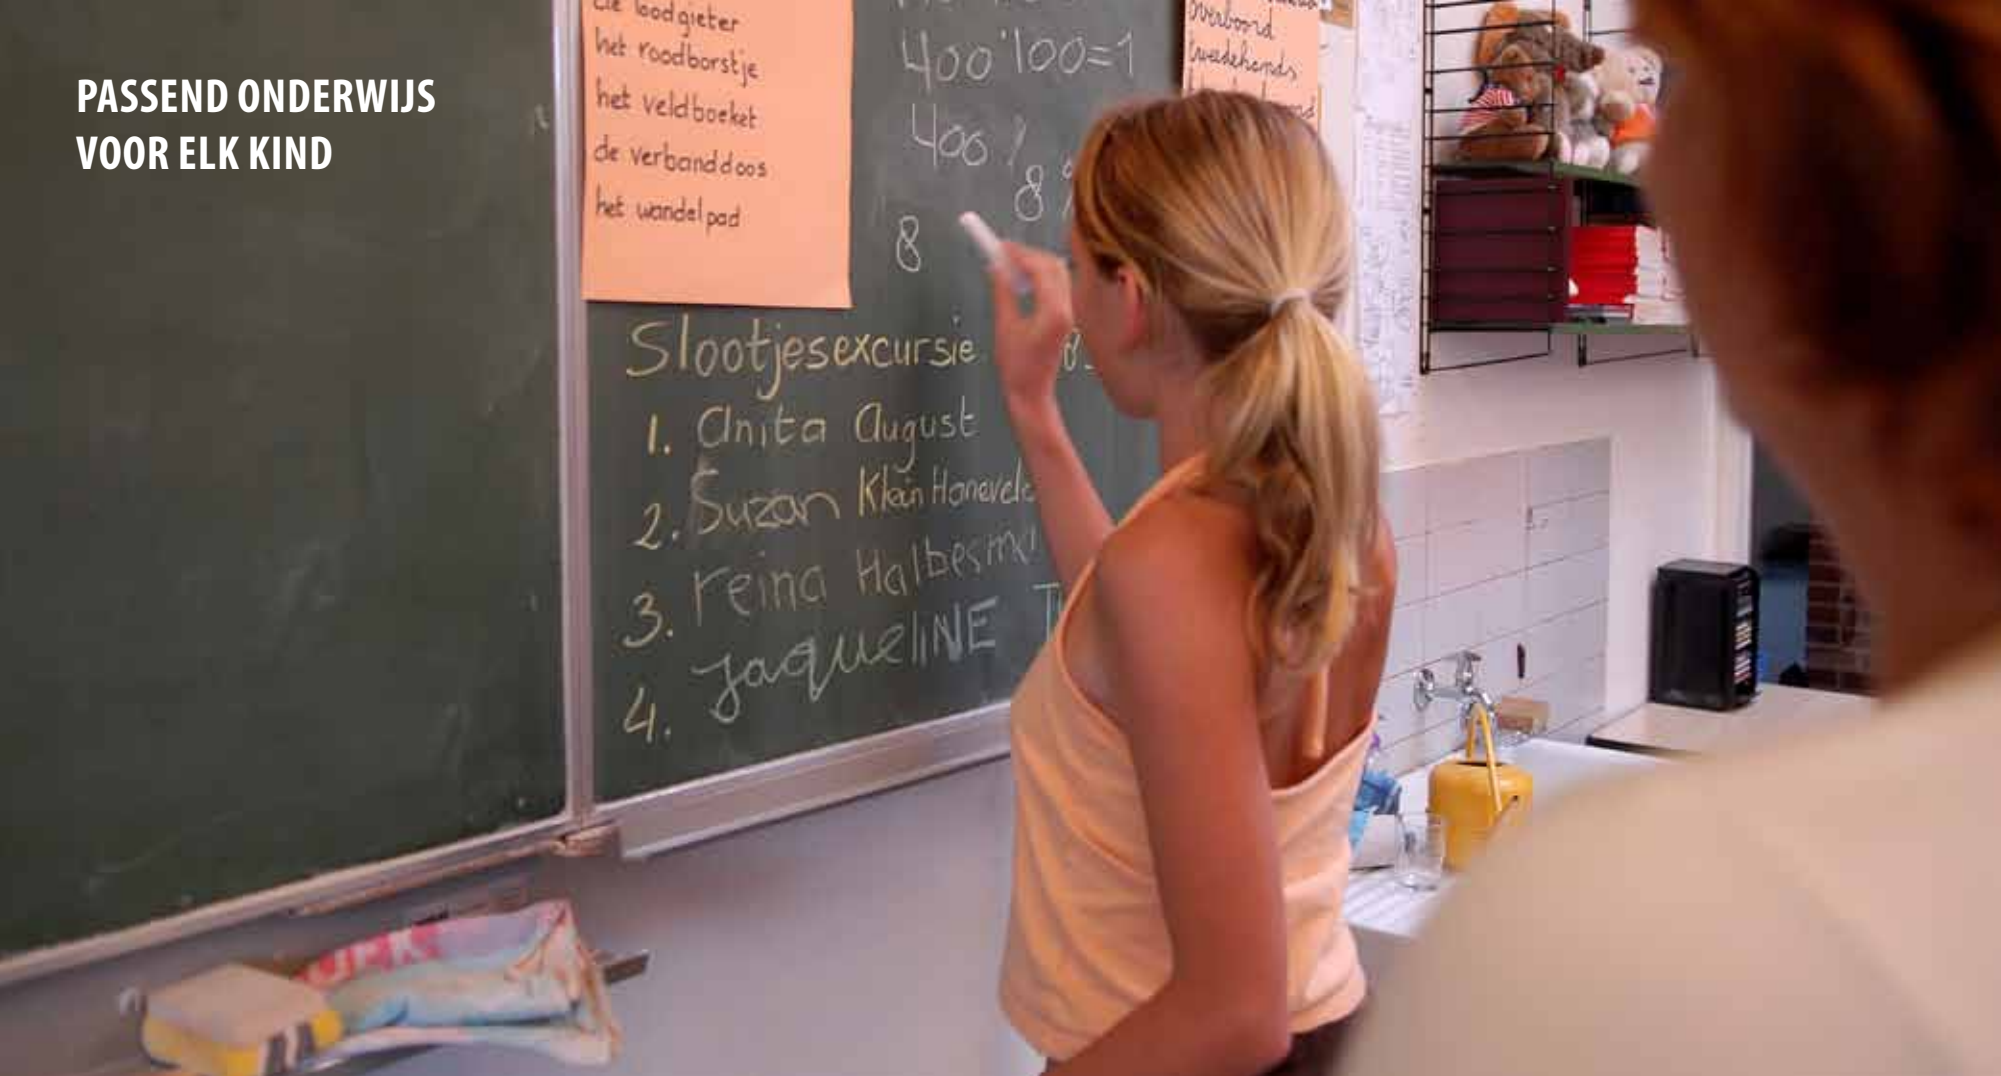 PASSEND ONDERWIJS
VOOR ELK KIND
loodgieter
het roodborstje
het veldboeket
de verbanddoos
het wandelpad
400:100=1
400
8
8
overboord
tweedehands
Slootjesexcursie
1. Anita August
2. Suzan Klein
3. reina Halbesma
4. JaqueliNE